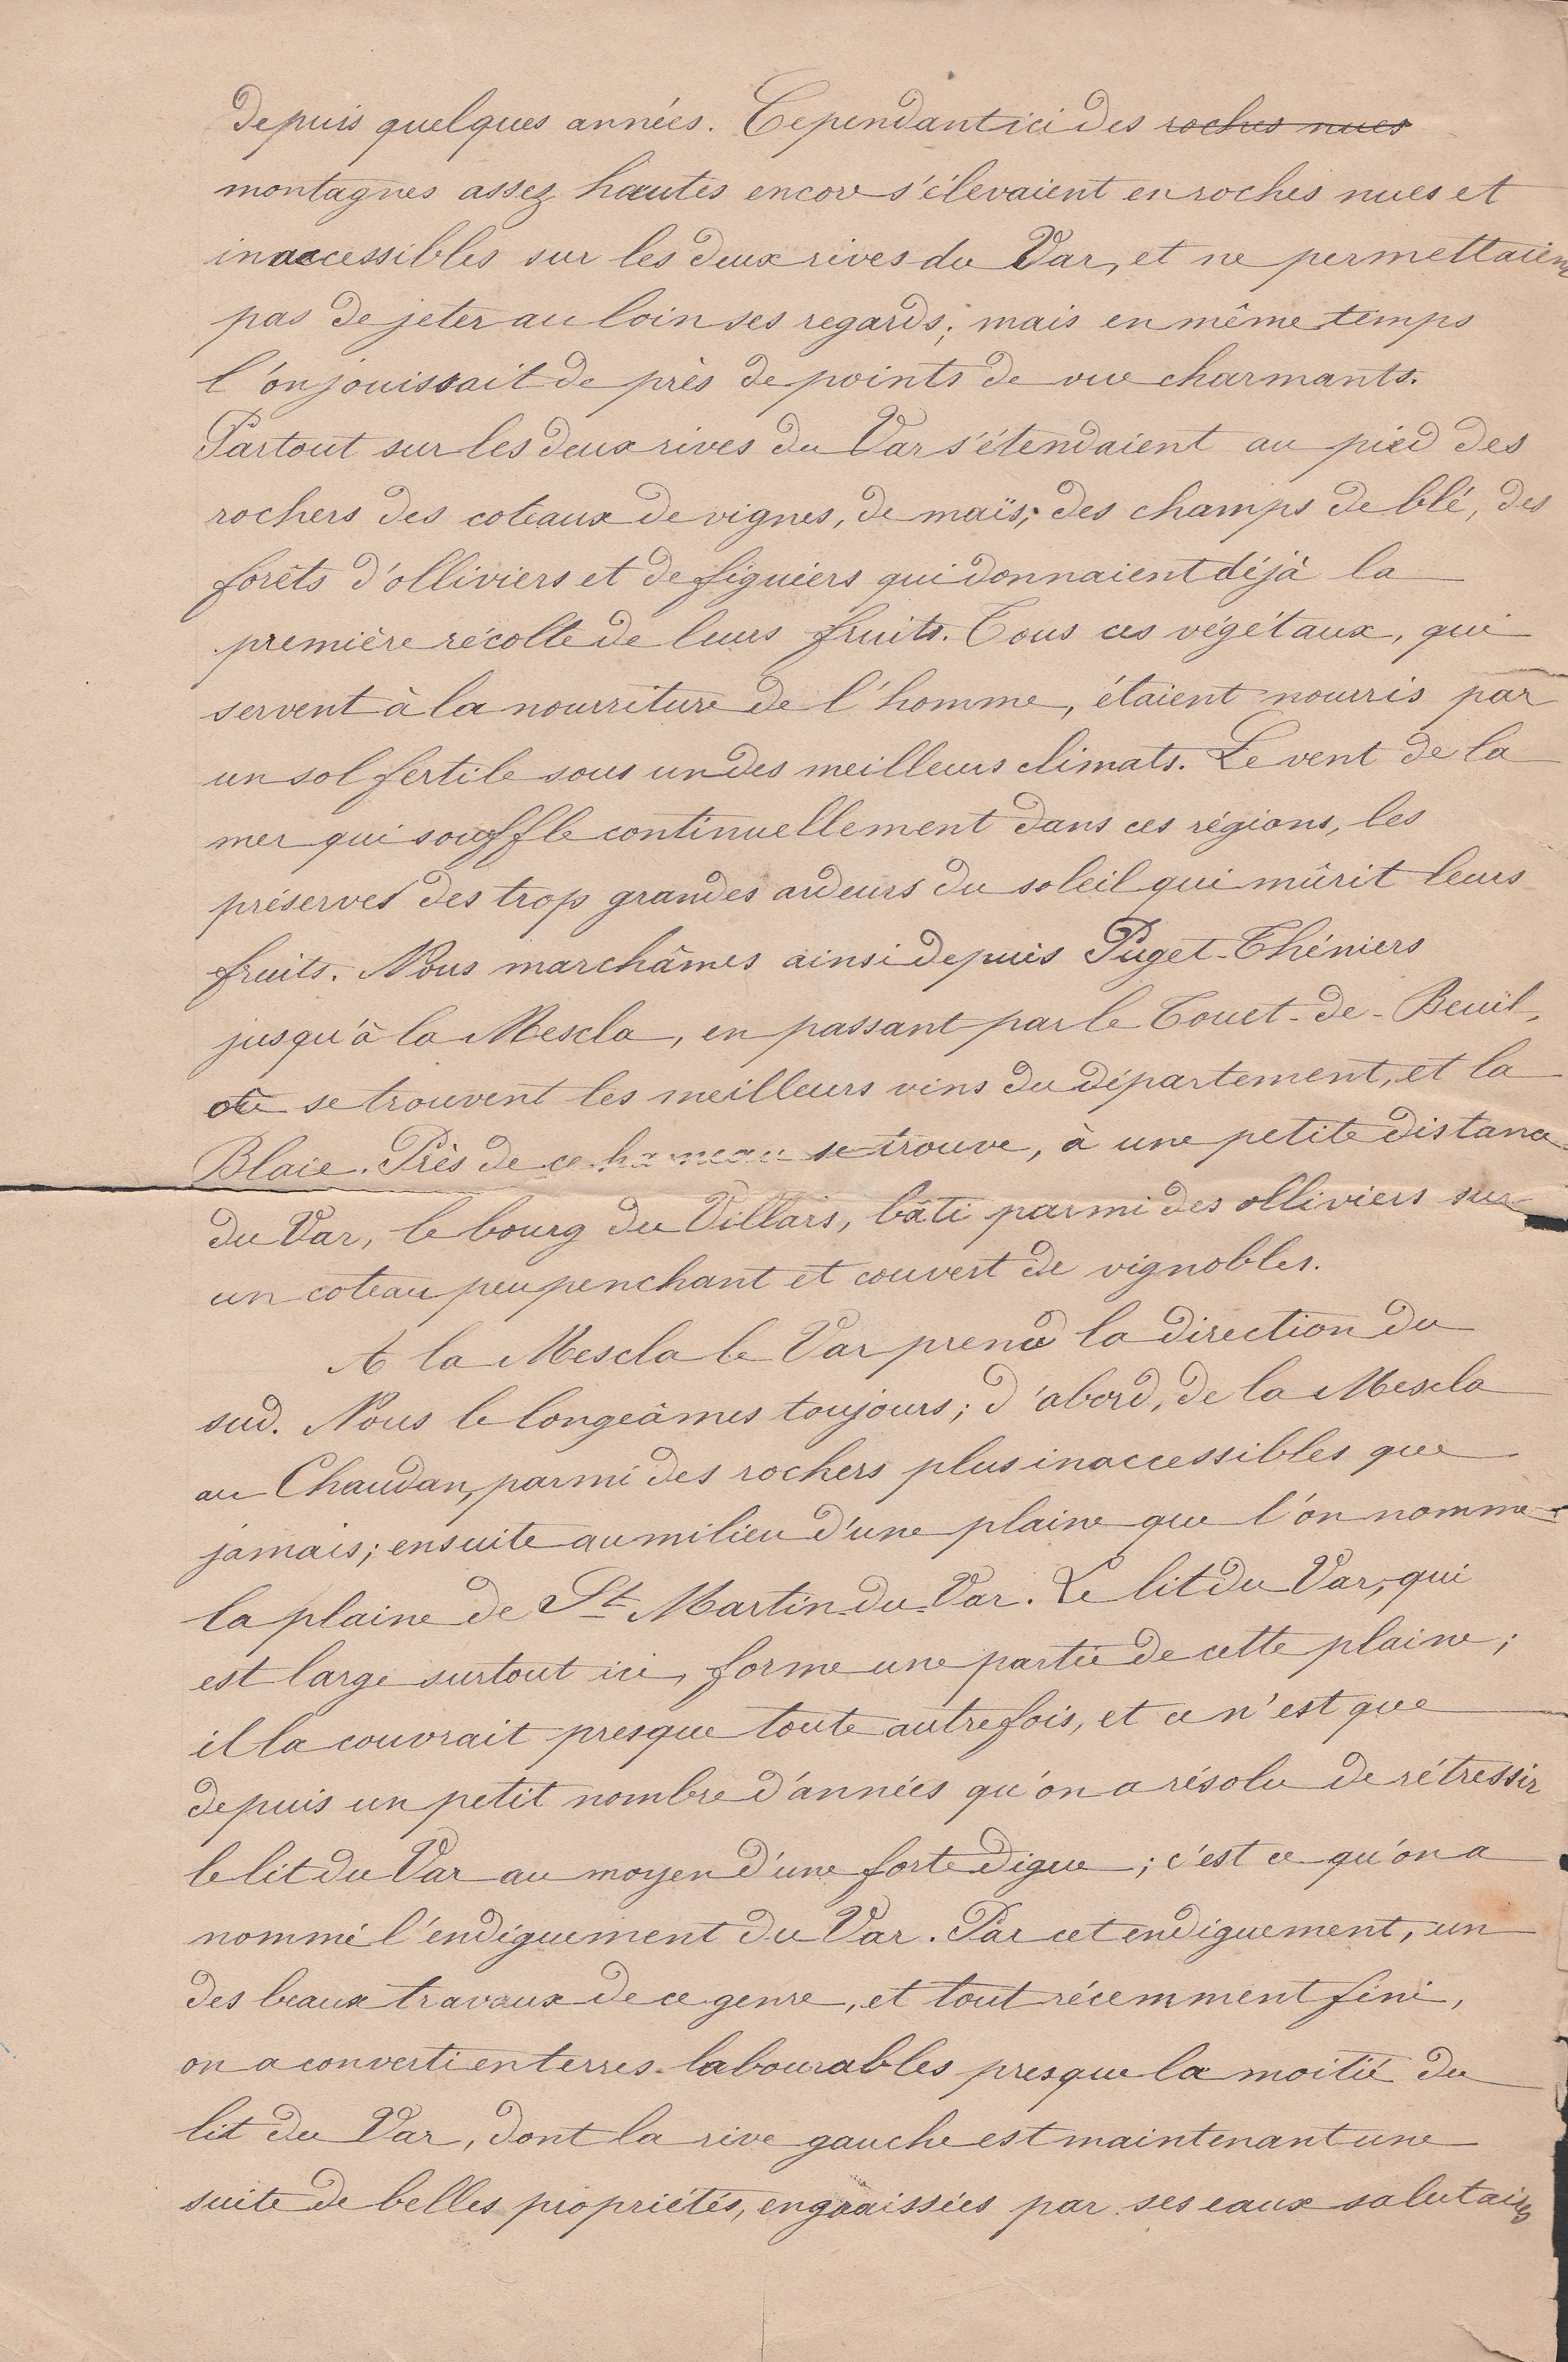 depuis quelques années. Cependant ici des roches nues
montagnes assez hautes encore s'élevaient en roches nues et
inaccessibles sur les deux rives du Var, et ne permettaient
pas de jeter au loin ses regards; mais en même temps
l'on jouissait de près de points de vue charmants.
Partout sur les deux rives du Var s'étendaient au pied des
rochers des coteaux de vignes, de maïs; des champs de blé, des
forêts d'olliviers et de figuiers qui donnaient déjà la
première récolte de leurs fruits. Tous ces végétaux, qui
servent à la nourriture de l'homme, étaient nourris par
un sol fertile sous un des meilleurs climats. Le vent de la
mer qui souffle continuellement dans ces régions, les
préserves des trop grandes ardeurs du soleil qui mûrit leurs
fruits. Nous marchâmes ainsi depuis Puget-Théniers
jusqu'à la Mescla, en passant par le Touet-de-Beuil,
où se trouvent les meilleurs vins du département, et la
Blaie. Près de ce hameau se trouve, à une petite distance
du Var, le bourg du Villars, bâti parmi des olliviers sur
un coteau peu penchant et couvert de vignobles.
A la Mescla le Var prend la direction du
sud. Nous le longeâmes toujours; d'abord, de la Mescla
au Chaudan, parmi des rochers plus inaccessibles que
jamais; ensuite au milieu d'une plaine que l'on nomme
la plaine de St Martin-du-Var. Le lit du Var, qui
est large surtout ici, forme une partie de cette plaine;
il la couvrait presque toute autrefois, et ce n'est que
depuis un petit nombre d'années qu'on a résolu de rétressir
le lit du Var au moyen d'une forte digue; c'est ce qu'on a
nommé l'endiguement du Var. Par cet endiguement, un
des beaux travaux de ce genre, et tout récemment fini,
on a converti en terres labourables presque la moitié du
lit du Var, dont la rive gauche est maintenant une
suite de belles propriétés, engraissées par ses eaux salutaires